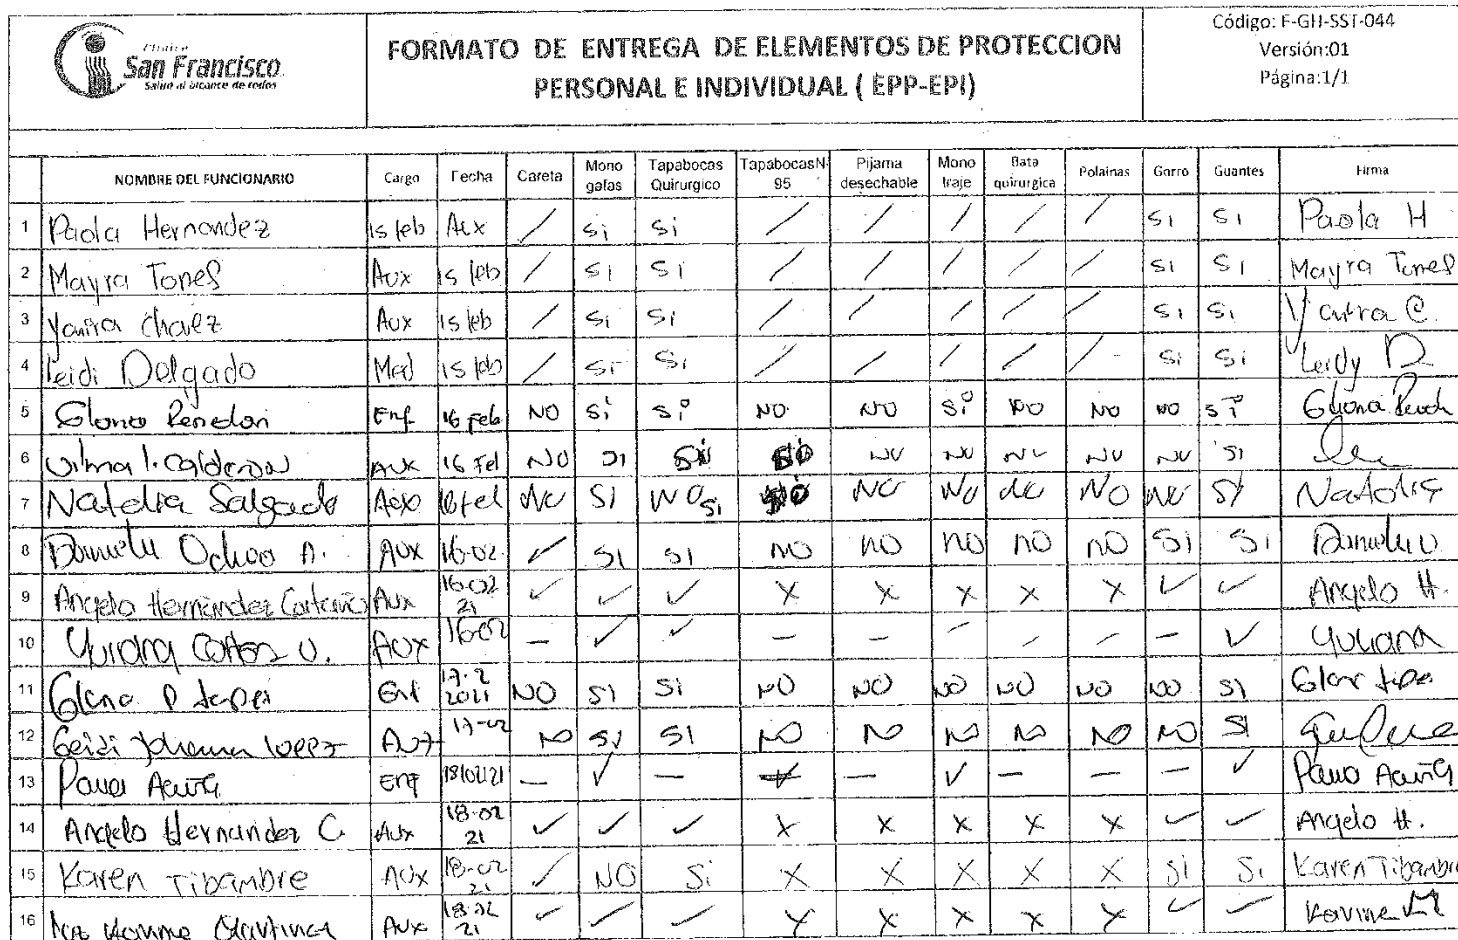 Clínica
San Francisco
Salud al alcance de todos
FORMATO DE ENTREGA DE ELEMENTOS DE PROTECCION
PERSONAL E INDIVIDUAL ( EPP-EPI)
Código: F-GH-SST-044
Versión:01
Página:1/1
NOMBRE DEL FUNCIONARIO Cargo Fecha Careta Mono gafas Tapabocas Quirurgico Tapabocas N-95 Pijama desechable Mono traje Bata quirurgica Polainas Gorro Guantes Firma
1 Paola Hernandez 15 feb Aux / Si Si / / / / / Si Si Paola H
2 Mayra Torres Aux 15 feb / Si Si / / / / / Si Si Mayra Torres
3 Yanira Chavez Aux 15 feb / Si Si / / / / / Si Si Yanira C.
4 Leidi Delgado Med 15 feb / Si Si / / / / / Si Si Leidy D
5 Enf 16 feb NO Si Si NO NO Si NO NO NO Si
6 Vilma I. Calderon Aux 16 Feb NO SI Si NO NO NO NO NO SI
7 Natalia Salgado Aux 16 feb NO SI NO Si NO NO NO NO NO SI Natalia
8 Daniela Ochoa A. AUX 16-02 ✓ SI SI NO NO NO NO NO SI SI Daniela O
9 Angelo Hernández Aux 16-02 21 ✓ ✓ ✓ X X X X X ✓ ✓ Angelo H.
10 Yuliana AUX 16-02 — ✓ ✓ — — — — — — ✓ Yuliana
11 Enf 17-2 2021 NO SI SI NO NO NO NO NO NO SI
12 Leidi Johanna Lopez Aux 17-02 NO SI SI NO NO NO NO NO NO SI
13 Acuña Enf 18/02/21 — ✓ — — ✓ — — — ✓ Acuña
14 Angelo Hernandez C. Aux 18-02 21 ✓ ✓ ✓ X X X X X ✓ ✓ Angelo H.
15 Karen Tibambre Aux 18-02 21 ✓ NO Si X X X X X Si Si Karen Tibambre
16 Martinez Aux 18-02 21 ✓ ✓ ✓ X X X X X ✓ ✓ M